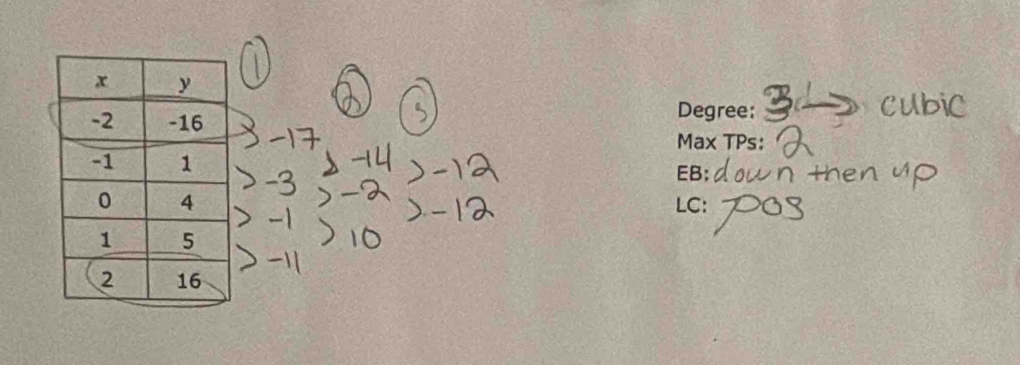 ① ② ③
x y
-2 -16
-1 1
0 4
1 5
2 16
> -17
> -3
> -1
> -11
> -14
> -2
> 10
> -12
> -12
Degree: 3 → cubic
Max TPs: 2
EB: down then up
LC: pos